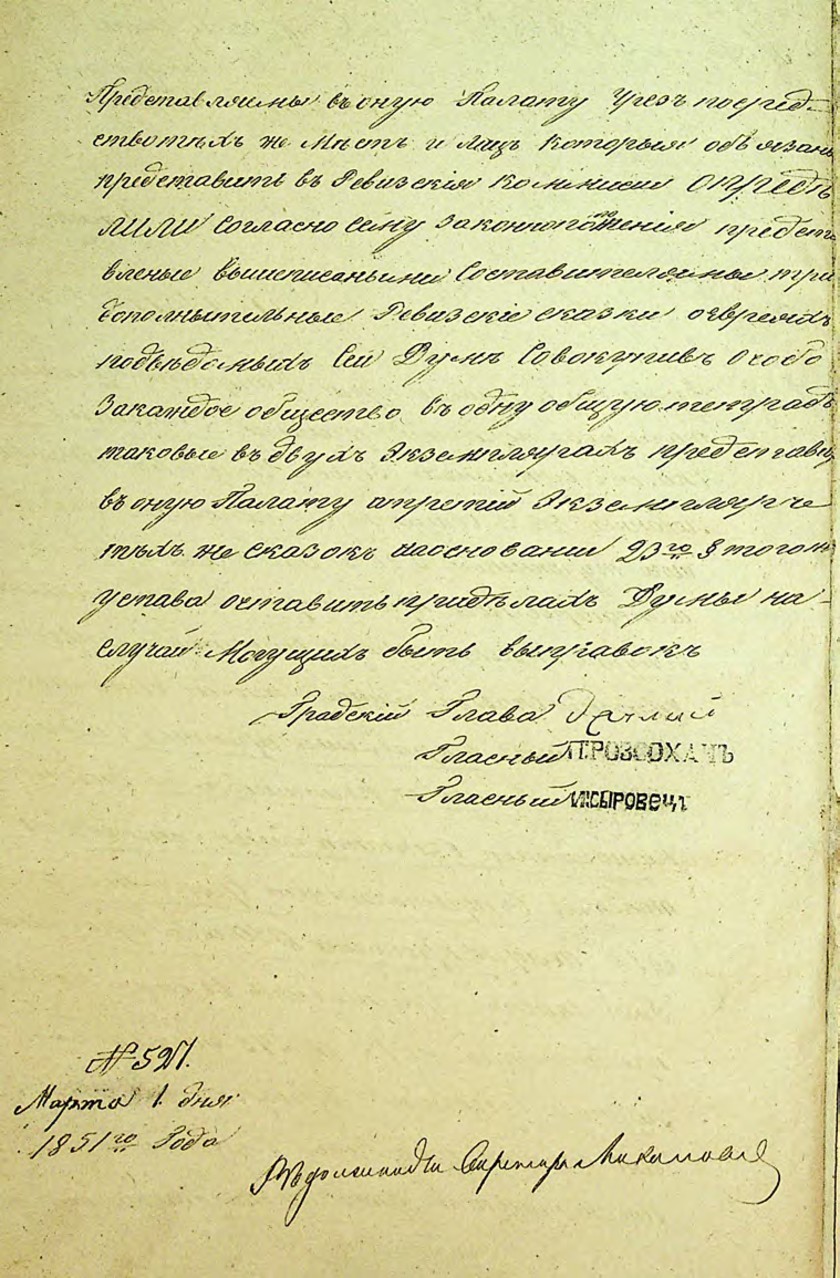 Представляемы въ оную Палату чрезъ посред-
ство тѣхъ же Мѣстъ и лицъ которыя обязаны
представить въ Ревизскія Коммисии ОПРЕДѢ
ЛИЛИ Согласно сему Законоположенія предста
вленые вышеписаными Составителямы три
дополнительные Ревизскіе сказки о евреяхъ
подвѣдомыхъ Сей Думѣ Совокупивъ особо
Закаждое общество въ одну общую тетрадь
таковые въ двухъ Экземплярахъ представить
въ оную Палату атретій Экземпляръ
тѣхъ же сказокъ наосновании 23го § того же
устава оставить придѣлахъ Думы на-
случай Могущихъ быть выправокъ
Градскій Глава
Гласный П.РОЗСОХАЧЪ
Гласный И.СЫРОВЕЦЪ
№ 527.
Марта 1. дня
1851го Года
Секретарь